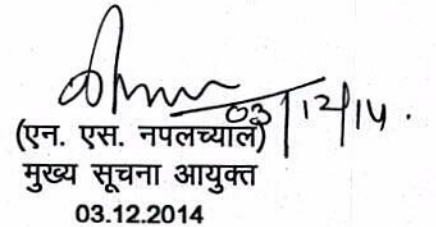 03/12/14.
(एन. एस. नपलच्याल)
मुख्य सूचना आयुक्त
03.12.2014